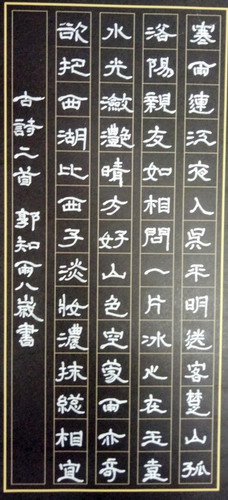 寒雨連江夜入吳平明送客楚山孤
洛陽親友如相問一片冰心在玉壺
水光瀲灩晴方好山色空蒙雨亦奇
欲把西湖比西子淡妝濃抹總相宜
古詩二首 郭知雨八歲書